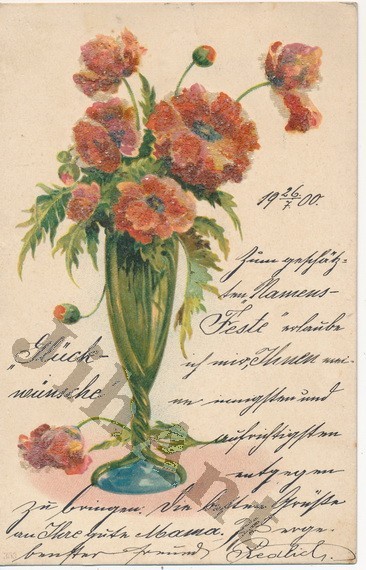 19 26/7 00.
Zum geschätz-
ten Namens-
Feste" erlaube
"Glück-
ich mir, Ihnen mei-
wünsche"
ne innigsten und
aufrichtigsten
entgegen
zu bringen. Die besten Grüße
an Ihre gute Mama. Ihr erge-
benster Freund Redlich.